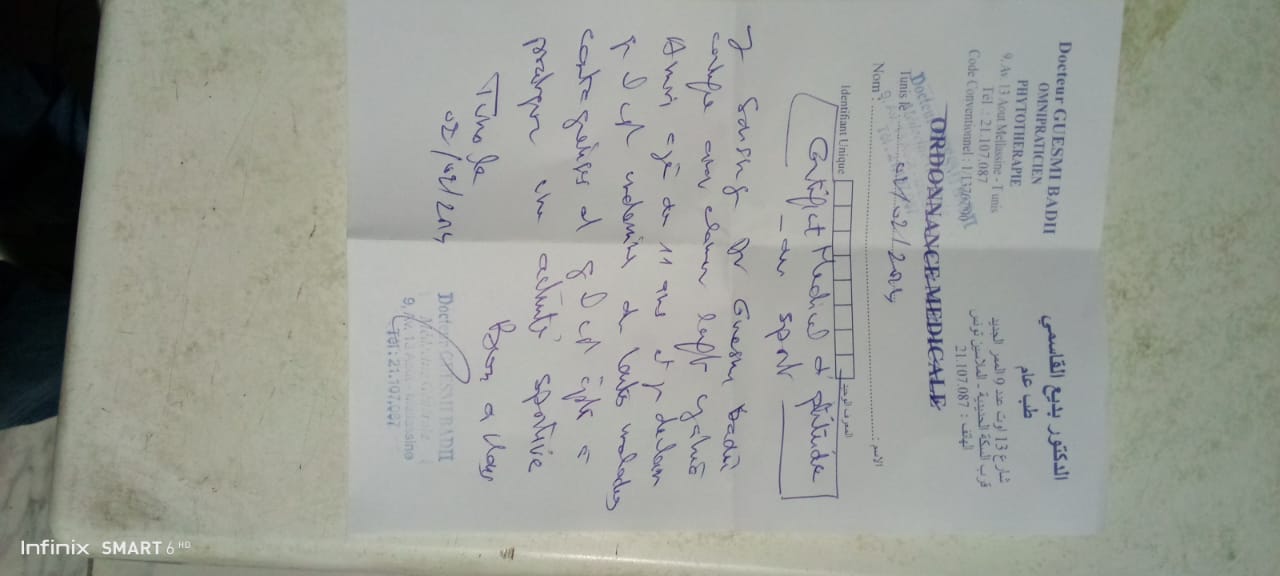 Docteur GUESMI BADII
OMNIPRATICIEN
PHYTOTHERAPIE
9, Av. 13 Aout Mellassine - Tunis
Tél : 21.107.087
Code Conventionnel :
الدكتور بديع القاسمي
طب عام
شارع 13 اوت عدد 9 الممر الجديد
قرب السكة الحديدية - الملاسين تونس
الهاتف : 21.107.087
ORDONNANCE MEDICALE
Tunis le 02/02/2024
Nom : الاسم :
Identifiant Unique المعرف الوحيد
Certificat Medical d'aptitude
au sport
Je soussigné Dr Guesmi Badii
certifie avoir examiné
Amri agé de 11 ans et je declare
qu'il est indemne de toutes maladies
contagieuses et qu'il est apte à
pratiquer une activité sportive
Bon a
Tunis le
02/02/2024
Docteur GUESMI BADII
9, Av. 13 Aout Mellassine
Tél : 21.107.087
Infinix SMART 6 HD